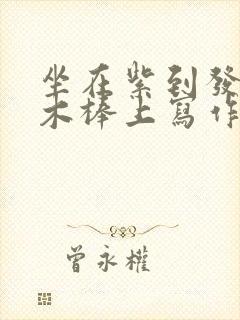 坐在紫到發
木棒上寫作
曾永權